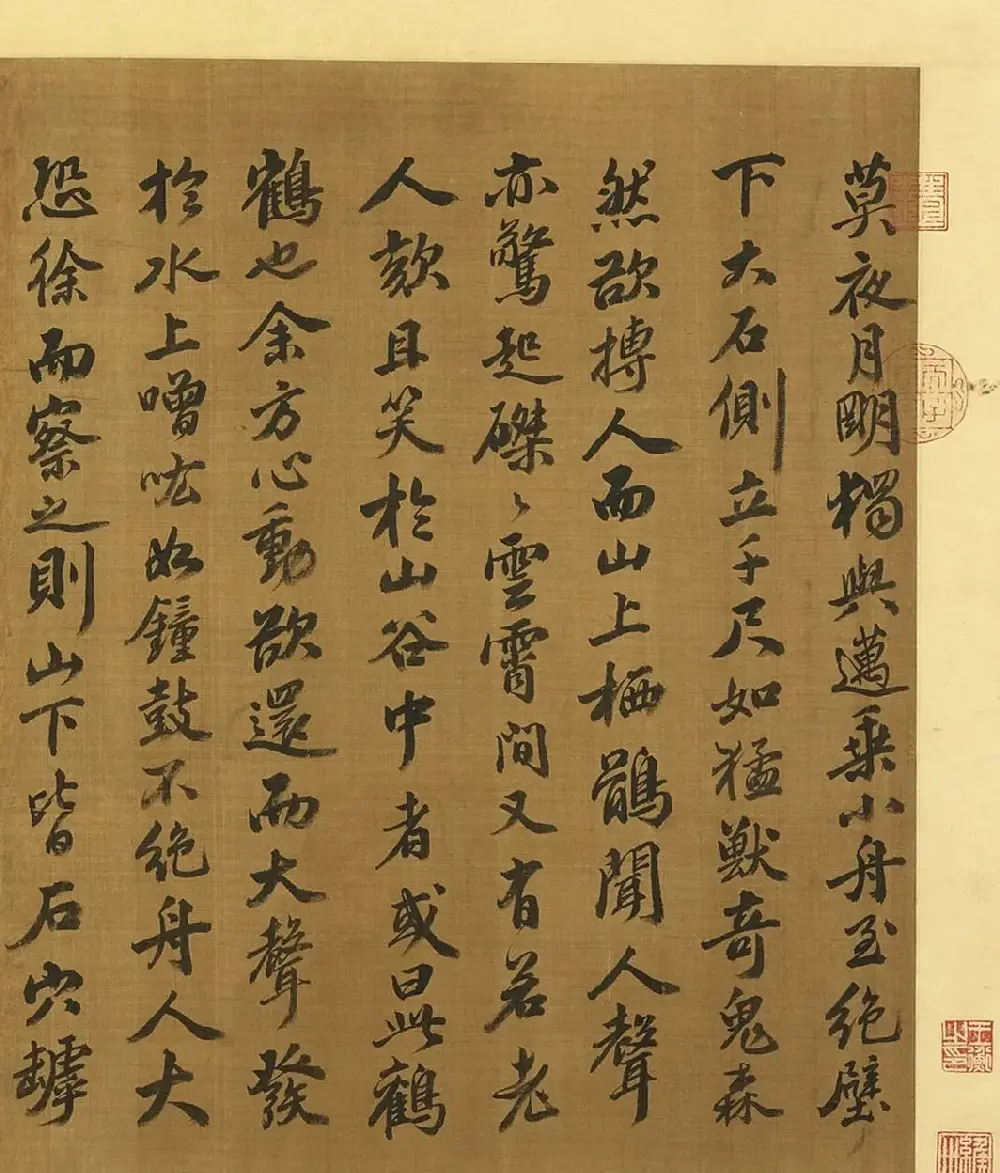 莫夜月明獨與邁乘小舟至絕壁
下大石側立千尺如猛獸奇鬼森
然欲搏人而山上栖鶻聞人聲
亦驚起磔〻雲霄間又有若老
人欬且笑於山谷中者或曰此鸛
鶴也余方心動欲還而大聲發
於水上噌吰如鐘鼓不絕舟人大
恐徐而察之則山下皆石穴罅